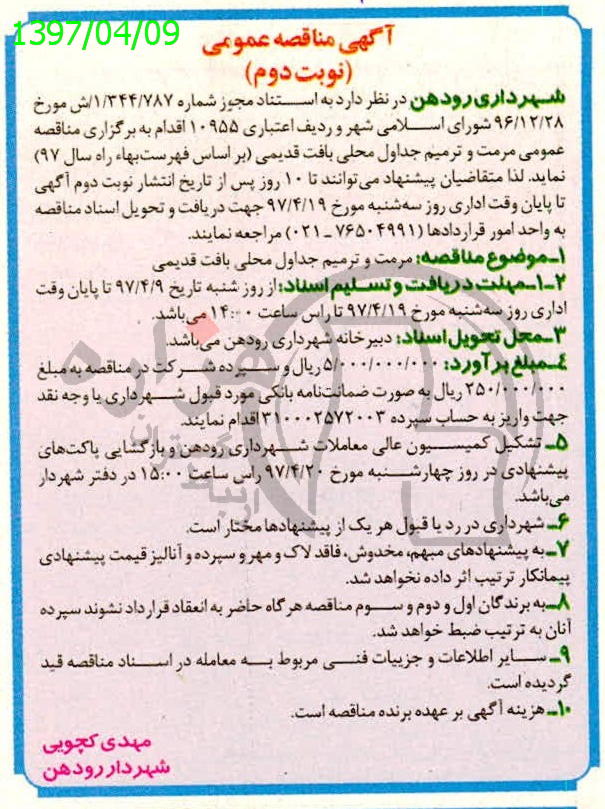 1397/04/09
آگهی مناقصه عمومی
(نوبت دوم)
شهرداری رودهن در نظر دارد به استناد مجوز شماره ۱/۳۴۴/۷۸۷/ش مورخ
۹۶/۱۲/۲۸ شورای اسلامی شهر و ردیف اعتباری ۱۰۹۵۵ اقدام به برگزاری مناقصه
عمومی مرمت و ترمیم جداول محلی بافت قدیمی (بر اساس فهرست‌بهاء راه سال ۹۷)
نماید. لذا متقاضیان پیشنهاد می‌توانند تا ۱۰ روز پس از تاریخ انتشار نوبت دوم آگهی
تا پایان وقت اداری روز سه‌شنبه مورخ ۹۷/۴/۱۹ جهت دریافت و تحویل اسناد مناقصه
به واحد امور قراردادها (۷۶۵۰۴۹۹۱-۰۲۱) مراجعه نمایند.
۱-موضوع مناقصه: مرمت و ترمیم جداول محلی بافت قدیمی
۱-۲-مهلت دریافت و تسلیم اسناد: از روز شنبه تاریخ ۹۷/۴/۹ تا پایان وقت
اداری روز سه‌شنبه مورخ ۹۷/۴/۱۹ تا راس ساعت ۱۴:۰۰ می‌باشد.
۳-محل تحویل اسناد: دبیرخانه شهرداری رودهن می‌باشد.
۴-مبلغ برآورد: ۵/۰۰۰/۰۰۰/۰۰۰ ریال و سپرده شرکت در مناقصه به مبلغ
۲۵۰/۰۰۰/۰۰۰ ریال به صورت ضمانت‌نامه بانکی مورد قبول شهرداری یا وجه نقد
جهت واریز به حساب سپرده ۳۱۰۰۰۲۵۷۲۰۰۳ اقدام نمایند.
۵- تشکیل کمیسیون عالی معاملات شهرداری رودهن و بازگشایی پاکت‌های
پیشنهادی در روز چهارشنبه مورخ ۹۷/۴/۲۰ راس ساعت ۱۵:۰۰ در دفتر شهردار
می‌باشد.
۶- شهرداری در رد یا قبول هر یک از پیشنهادها مختار است.
۷- به پیشنهادهای مبهم، مخدوش، فاقد لاک و مهر و سپرده و آنالیز قیمت پیشنهادی
پیمانکار ترتیب اثر داده نخواهد شد.
۸- به برندگان اول و دوم و سوم مناقصه هرگاه حاضر به انعقاد قرارداد نشوند سپرده
آنان به ترتیب ضبط خواهد شد.
۹- سایر اطلاعات و جزییات فنی مربوط به معامله در اسناد مناقصه قید
گردیده است.
۱۰- هزینه آگهی بر عهده برنده مناقصه است.
مهدی کچویی
شهردار رودهن